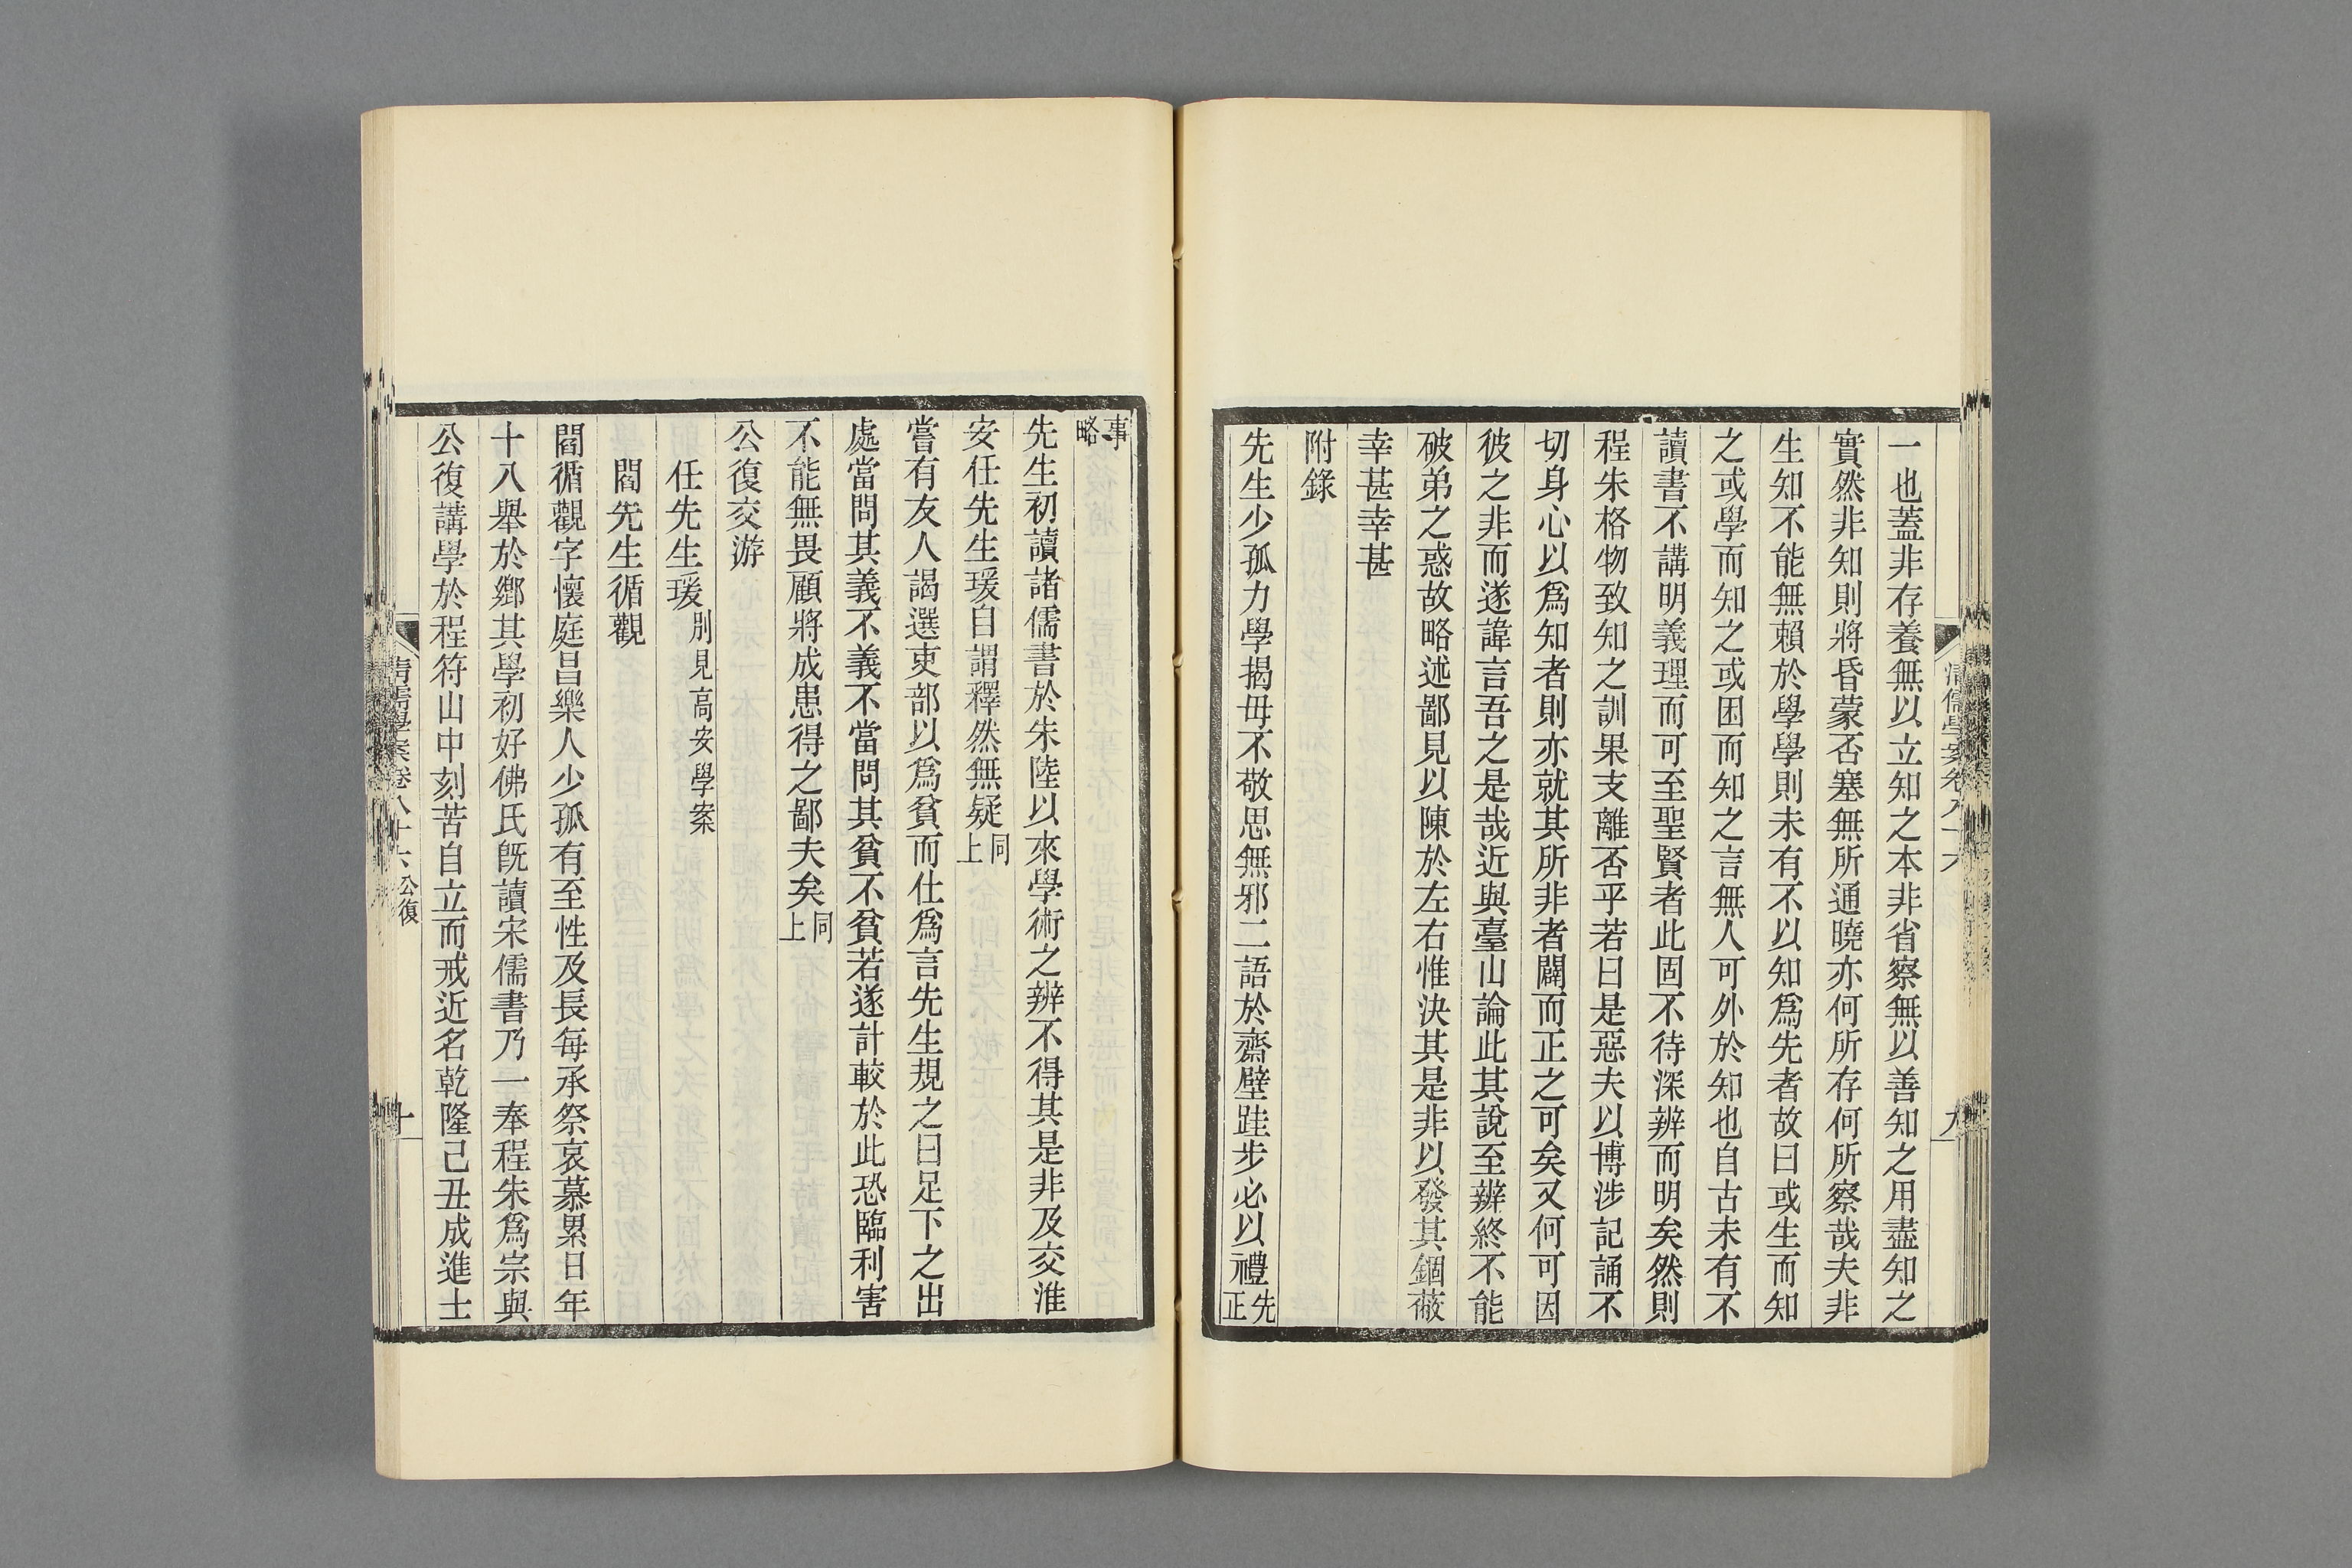 一也蓋非存養無以立知之本非省察無以善知之用盡知之
實然非知則將昏蒙否塞無所通曉亦何所存何所察哉夫非
生知不能無賴於學學則未有不以知爲先者故曰或生而知
之或學而知之或困而知之言無人可外於知也自古未有不
讀書不講明義理而可至聖賢者此固不待深辨而明矣然則
程朱格物致知之訓果支離否乎若曰是惡夫以博涉記誦不
切身心以爲知者則亦就其所非者闢而正之可矣又何可因
彼之非而遂諱言吾之是哉近與臺山論此其說至辨終不能
破弟之惑故略述鄙見以陳於左右惟決其是非以發其錮蔽
幸甚幸甚
附錄
先生少孤力學揭毋不敬思無邪二語於齋壁跬步必以禮先正
事略
先生初讀諸儒書於朱陸以來學術之辨不得其是非及交淮
安任先生瑗自謂釋然無疑同上
嘗有友人謁選吏部以爲貧而仕爲言先生規之曰足下之出
處當問其義不義不當問其貧不貧若遂計較於此恐臨利害
不能無畏顧將成患得之鄙夫矣同上
公復交游
任先生瑗別見高安學案
閻先生循觀
閻循觀字懷庭昌樂人少孤有至性及長每承祭哀慕累日年
十八舉於鄉其學初好佛氏旣讀宋儒書乃一奉程朱爲宗與
公復講學於程符山中刻苦自立而戒近名乾隆己丑成進士
清儒學案卷八十六 公復
十